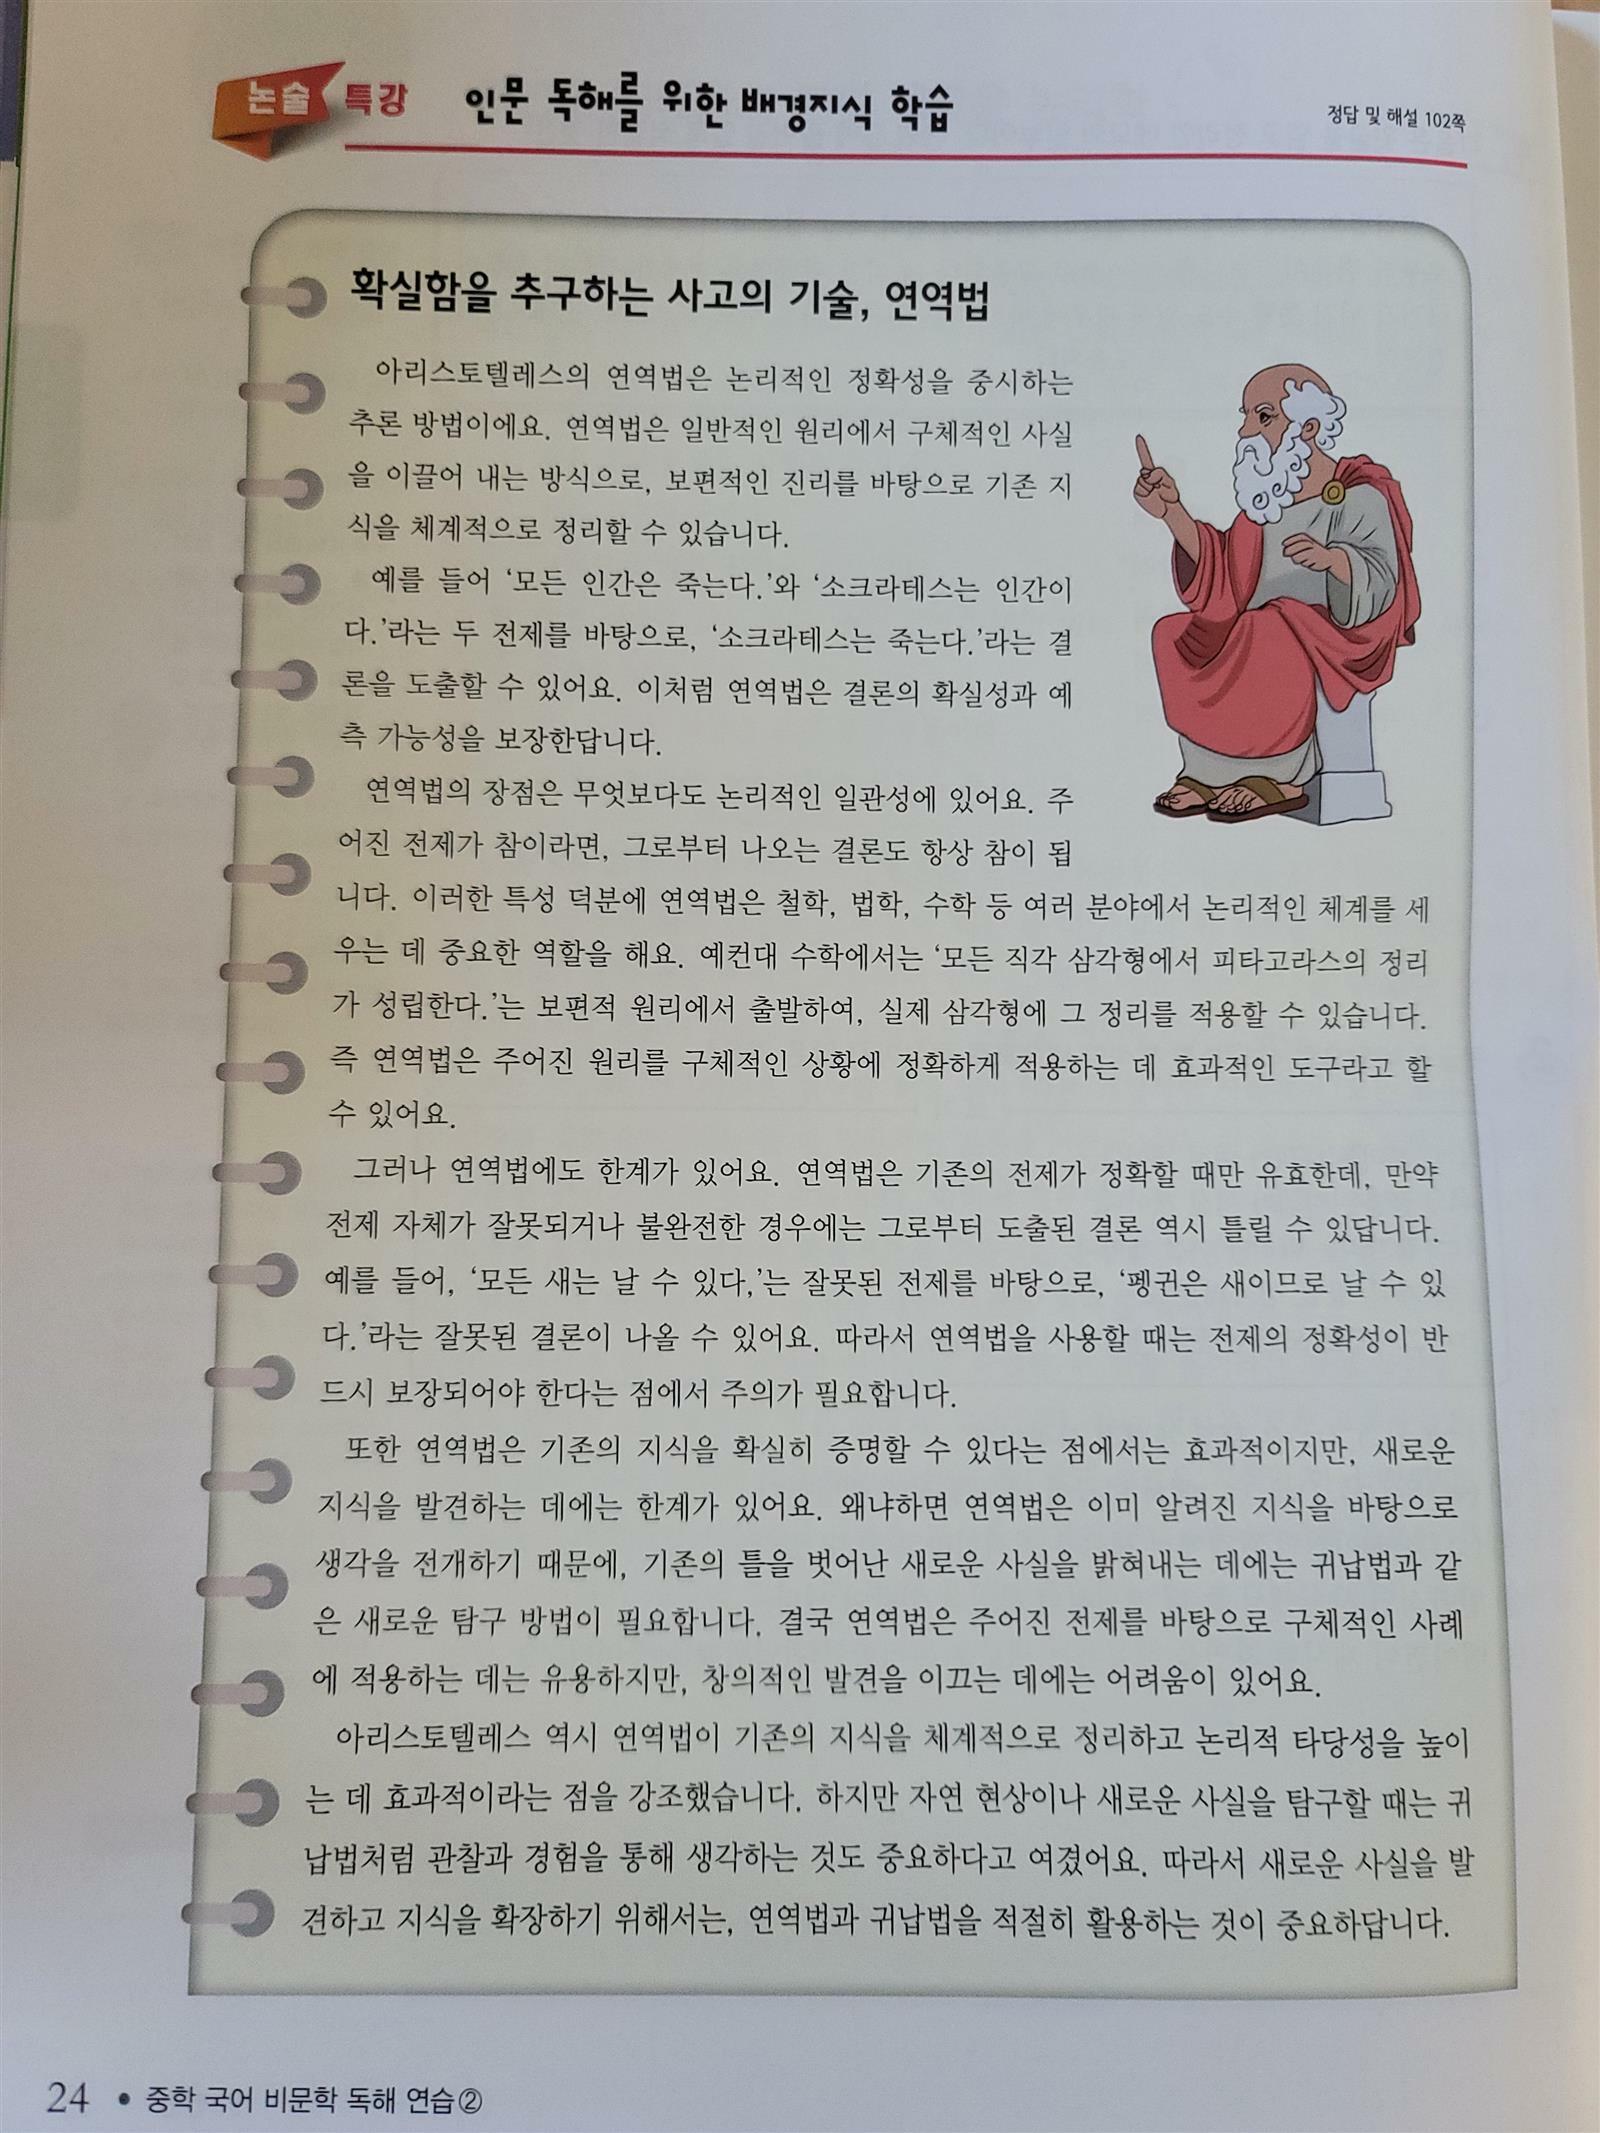 논술 특강 인문 독해를 위한 배경지식 학습
정답 및 해설 102쪽
확실함을 추구하는 사고의 기술, 연역법
아리스토텔레스의 연역법은 논리적인 정확성을 중시하는
추론 방법이에요. 연역법은 일반적인 원리에서 구체적인 사실
을 이끌어 내는 방식으로, 보편적인 진리를 바탕으로 기존 지
식을 체계적으로 정리할 수 있습니다.
예를 들어 ‘모든 인간은 죽는다.’와 ‘소크라테스는 인간이
다.’라는 두 전제를 바탕으로, ‘소크라테스는 죽는다.’라는 결
론을 도출할 수 있어요. 이처럼 연역법은 결론의 확실성과 예
측 가능성을 보장한답니다.
연역법의 장점은 무엇보다도 논리적인 일관성에 있어요. 주
어진 전제가 참이라면, 그로부터 나오는 결론도 항상 참이 됩
니다. 이러한 특성 덕분에 연역법은 철학, 법학, 수학 등 여러 분야에서 논리적인 체계를 세
우는 데 중요한 역할을 해요. 예컨대 수학에서는 ‘모든 직각 삼각형에서 피타고라스의 정리
가 성립한다.’는 보편적 원리에서 출발하여, 실제 삼각형에 그 정리를 적용할 수 있습니다.
즉 연역법은 주어진 원리를 구체적인 상황에 정확하게 적용하는 데 효과적인 도구라고 할
수 있어요.
그러나 연역법에도 한계가 있어요. 연역법은 기존의 전제가 정확할 때만 유효한데, 만약
전제 자체가 잘못되거나 불완전한 경우에는 그로부터 도출된 결론 역시 틀릴 수 있답니다.
예를 들어, ‘모든 새는 날 수 있다,’는 잘못된 전제를 바탕으로, ‘펭귄은 새이므로 날 수 있
다.’라는 잘못된 결론이 나올 수 있어요. 따라서 연역법을 사용할 때는 전제의 정확성이 반
드시 보장되어야 한다는 점에서 주의가 필요합니다.
또한 연역법은 기존의 지식을 확실히 증명할 수 있다는 점에서는 효과적이지만, 새로운
지식을 발견하는 데에는 한계가 있어요. 왜냐하면 연역법은 이미 알려진 지식을 바탕으로
생각을 전개하기 때문에, 기존의 틀을 벗어난 새로운 사실을 밝혀내는 데에는 귀납법과 같
은 새로운 탐구 방법이 필요합니다. 결국 연역법은 주어진 전제를 바탕으로 구체적인 사례
에 적용하는 데는 유용하지만, 창의적인 발견을 이끄는 데에는 어려움이 있어요.
아리스토텔레스 역시 연역법이 기존의 지식을 체계적으로 정리하고 논리적 타당성을 높이
는 데 효과적이라는 점을 강조했습니다. 하지만 자연 현상이나 새로운 사실을 탐구할 때는 귀
납법처럼 관찰과 경험을 통해 생각하는 것도 중요하다고 여겼어요. 따라서 새로운 사실을 발
견하고 지식을 확장하기 위해서는, 연역법과 귀납법을 적절히 활용하는 것이 중요하답니다.
24 • 중학 국어 비문학 독해 연습②